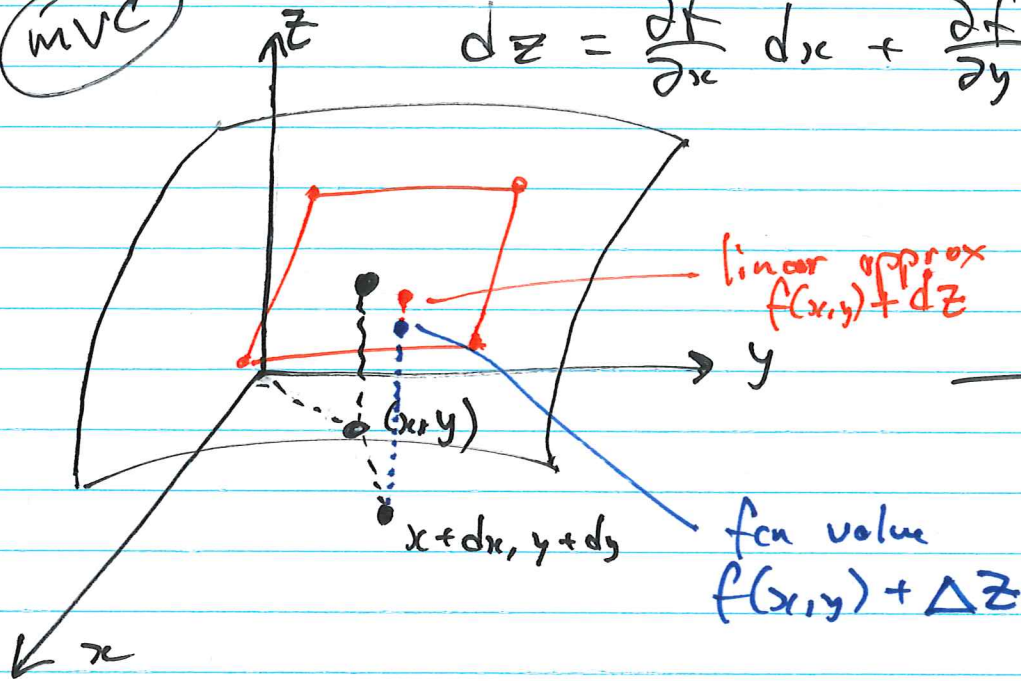 MVC
dz = ∂f/∂x dx + ∂f/∂y
z
linear approx
f(x,y) + dz
y
(x,y)
x+dx, y+dy
fcn value
f(x,y) + Δz
x